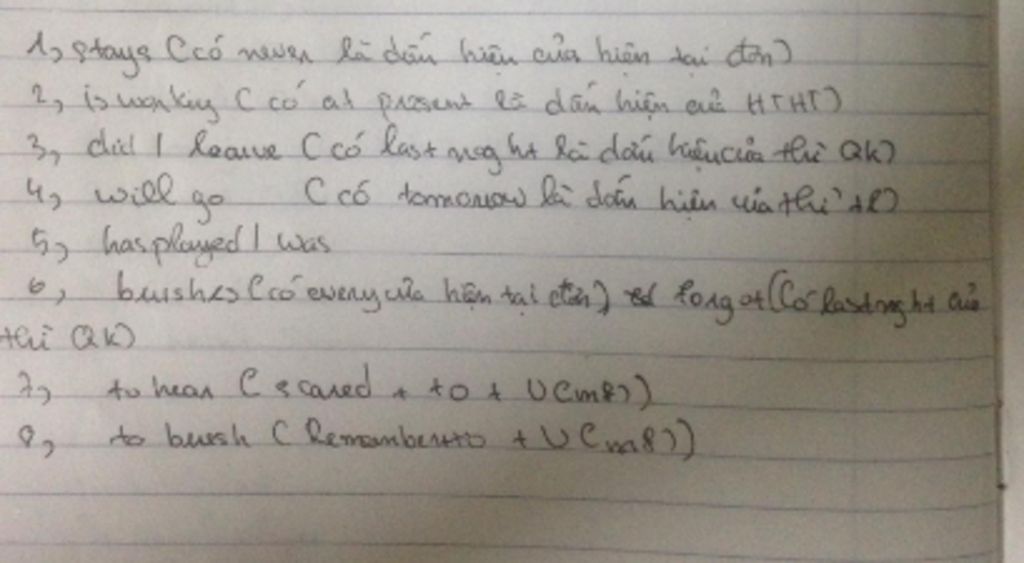 1, stays (có never là dấu hiệu của hiện tại đơn)
2, is working (có at present là dấu hiệu của HTHT)
3, did / leave (có last night là dấu hiệu của thì QK)
4, will go (có tomorrow là dấu hiệu của thì tl)
5, has played / was
6, bushes (có every của hiện tại đơn) forgot (có last night của
thì QK)
7, to hear (scared + to + V(
8, to bush (Remember + to + V(